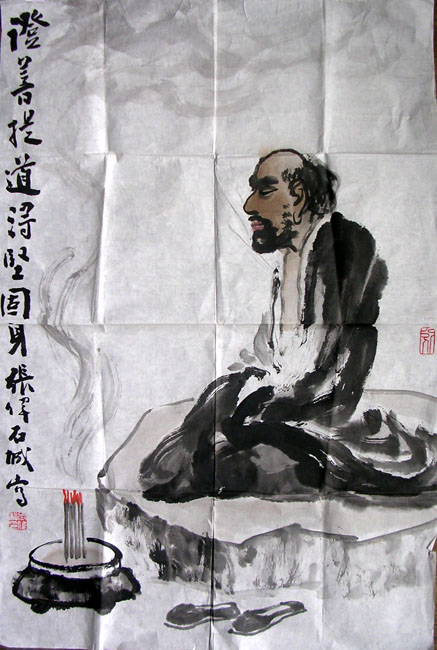 證菩提道得堅固身張偉石城寫